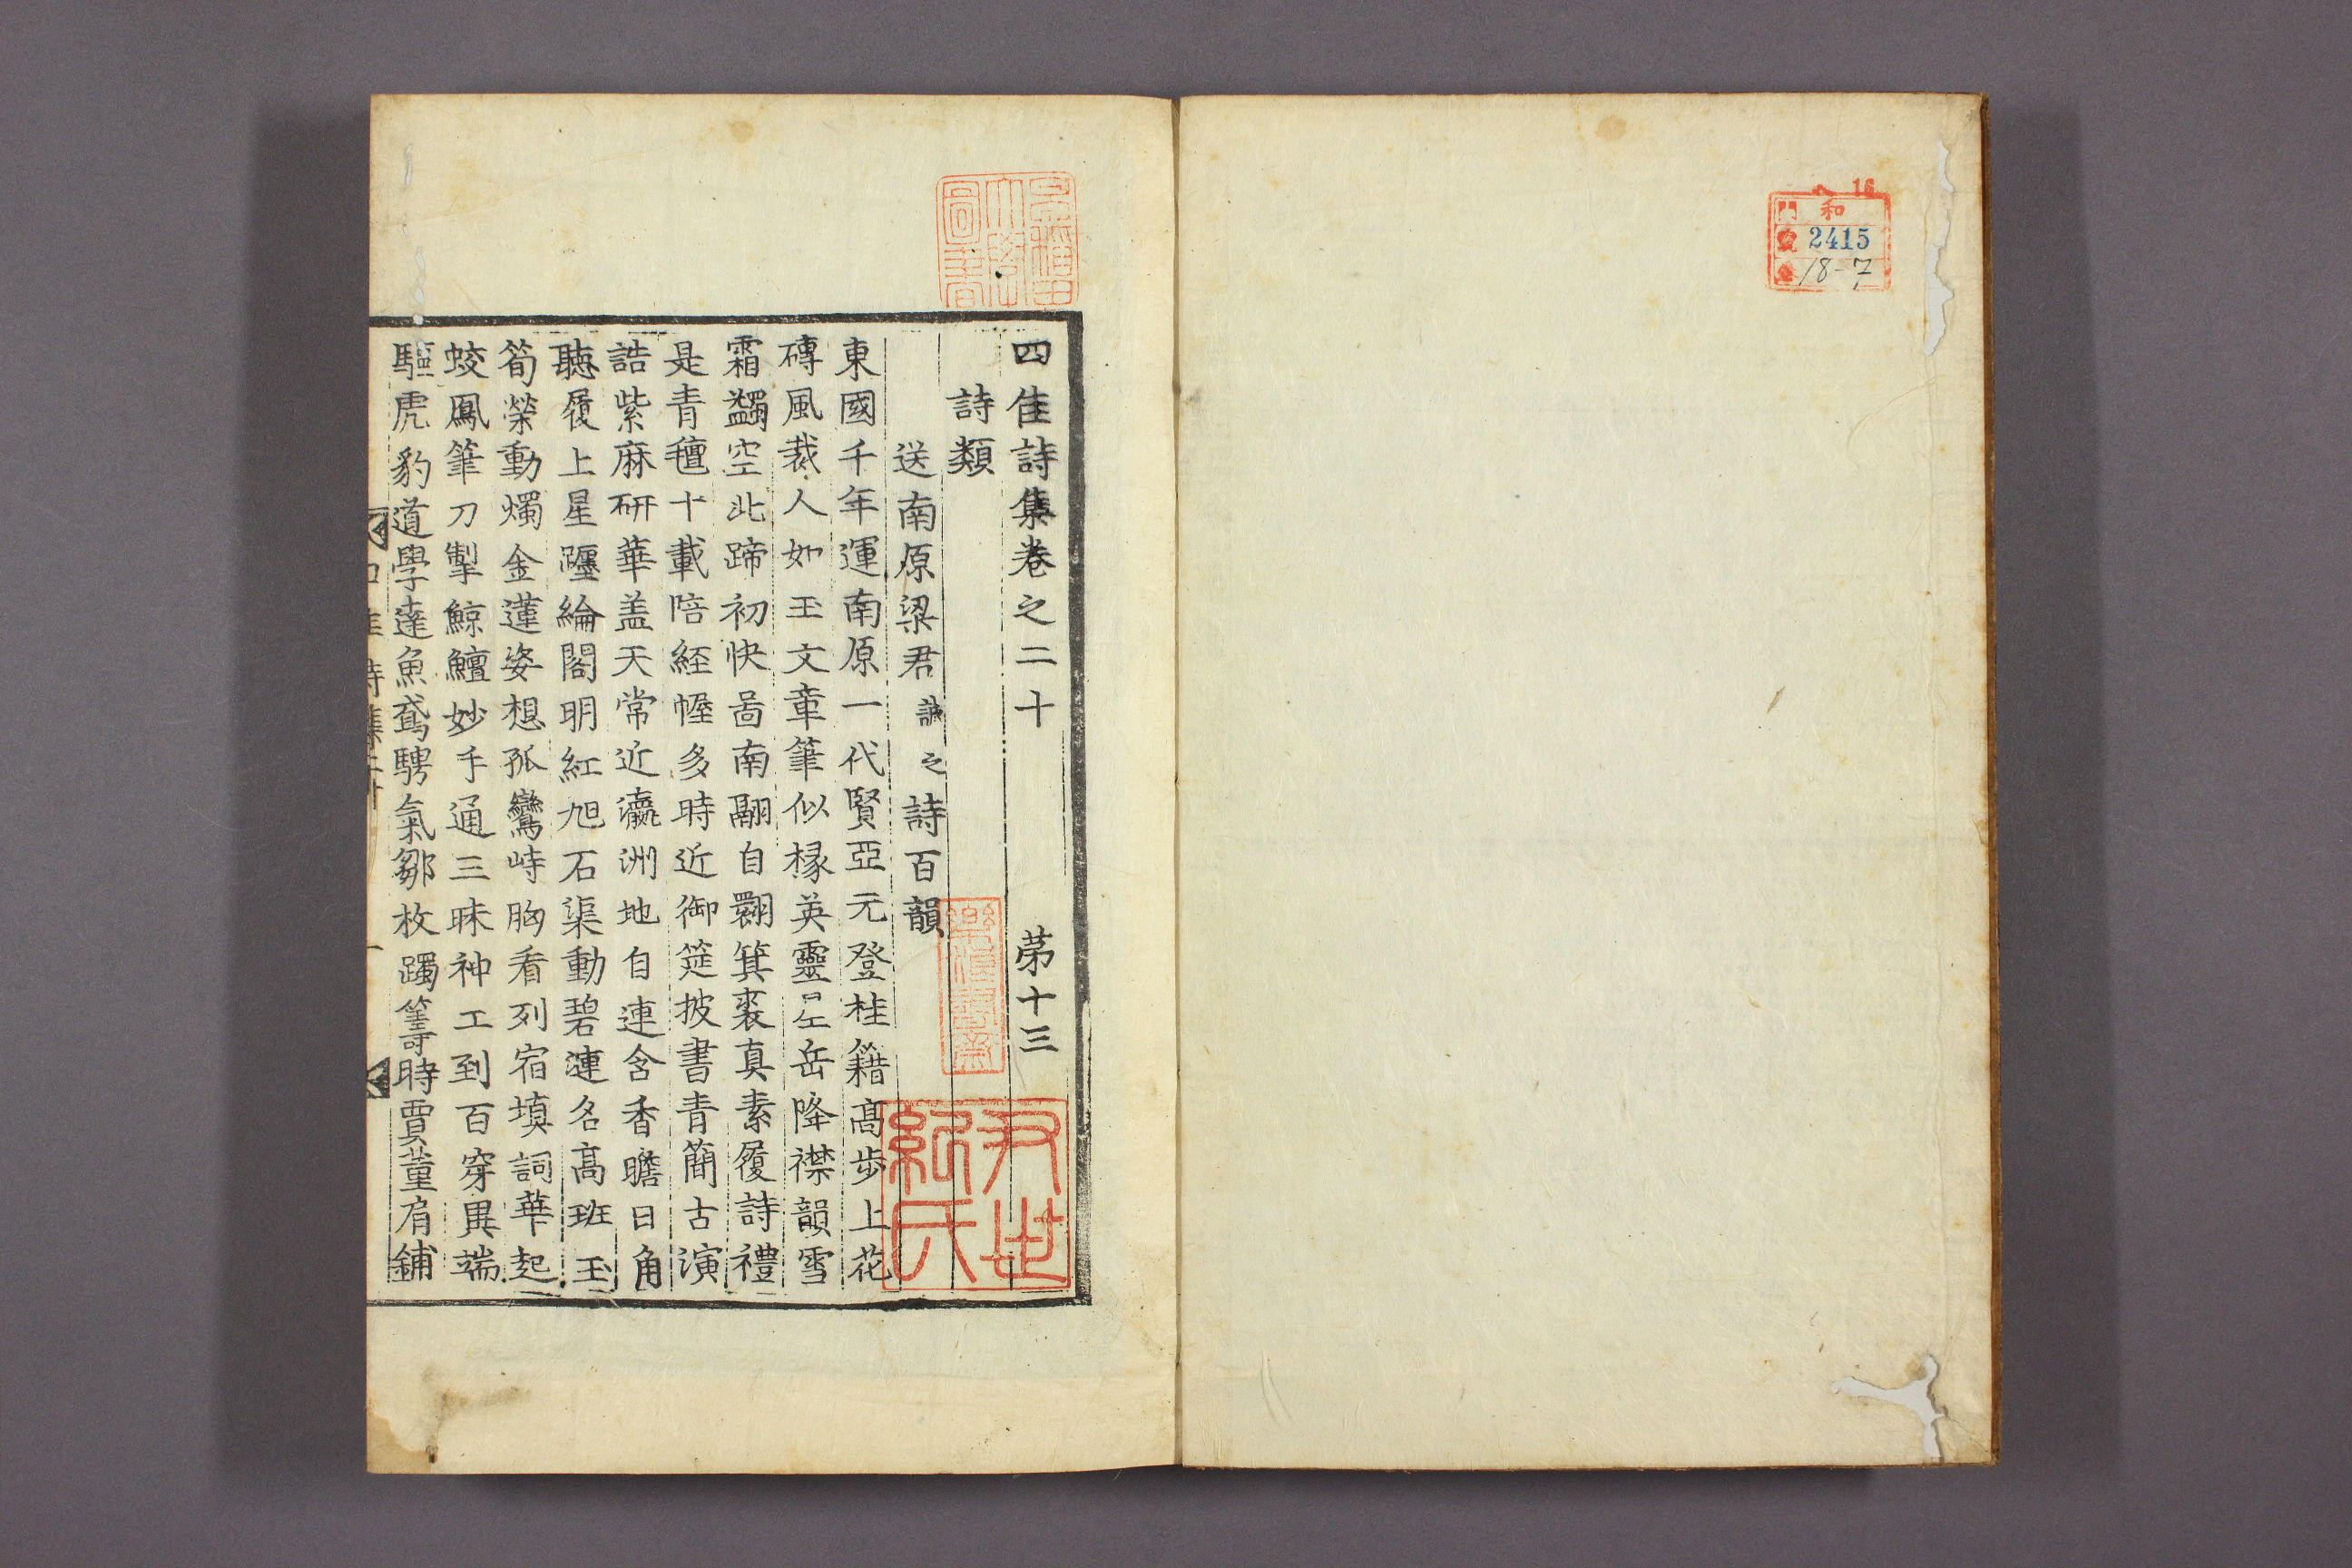 和
2415
18-7
四佳詩集卷之二十 苐十三
詩類
送南原梁君誠之詩百韻
東國千年運南原一代賢亞元登桂籍高步上花
磚風裁人如玉文章筆似椽英靈呈岳降襟韻雪
霜蠲空北蹄初快啚南翮自翾箕裘真素履詩禮
是青氊十載陪經幄多時近御筵披書青簡古演
誥紫麻研華盖天常近瀛洲地自連含香瞻日角
聽履上星躔綸閣明紅旭石渠動碧漣名高班玉
筍榮動燭金蓮姿想孤鸞峙胸看列宿填詞華起
蛟鳳筆刀掣鯨鱣妙手通三昧神工到百穿異端
驅虎豹道學達魚鳶騁氣鄒枚躅籌時賈董肩鋪
早稲田大學圖書
尹世紀氏